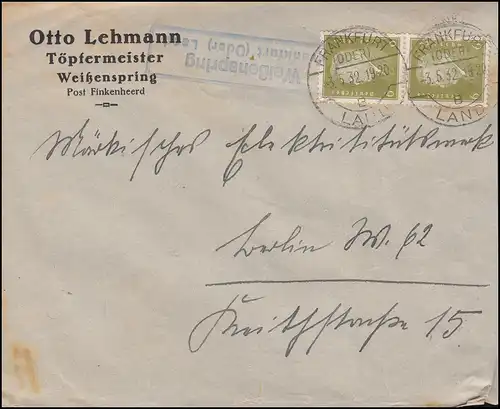 Otto Lehmann
Töpfermeister
Weißenspring
Post Finkenheerd
Weißenspring
Frankfurt (Oder) Land
FRANKFURT
(ODER)
3.5.32.19-20
B
LAND
FRANKFURT
(ODER)
3.5.32.19-20
B
LAND
Märkisches Elektrizitätswerk
Berlin W. 62
Keithstraße 15.